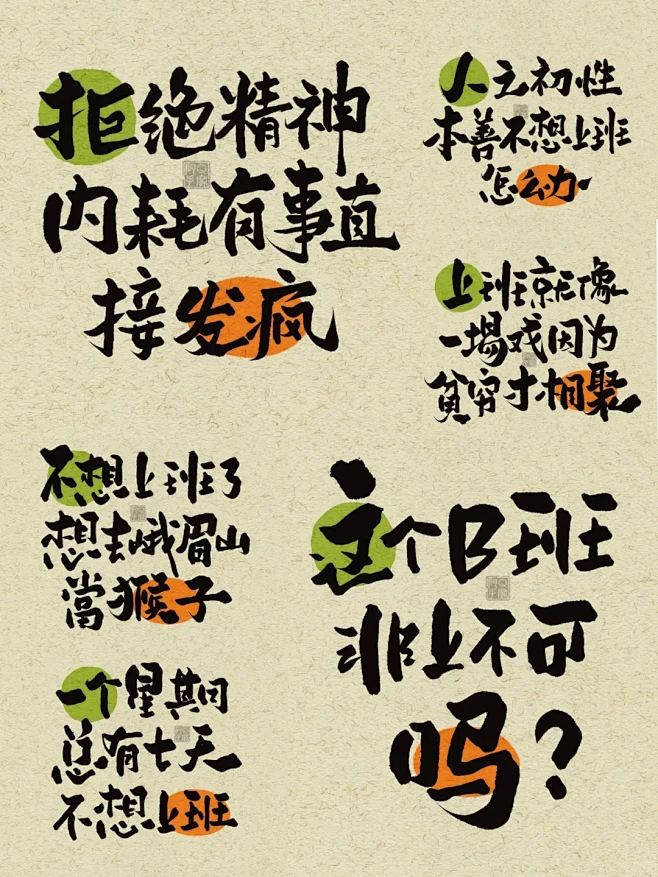 拒绝精神
内耗有事直
接发疯
人之初性
本善不想上班
怎么办
上班就像
一場戏因为
贫穷才相聚
不想上班了
想去峨眉山
當猴子
这个B班
非上不可
吗?
一个星期
总有七天
不想上班